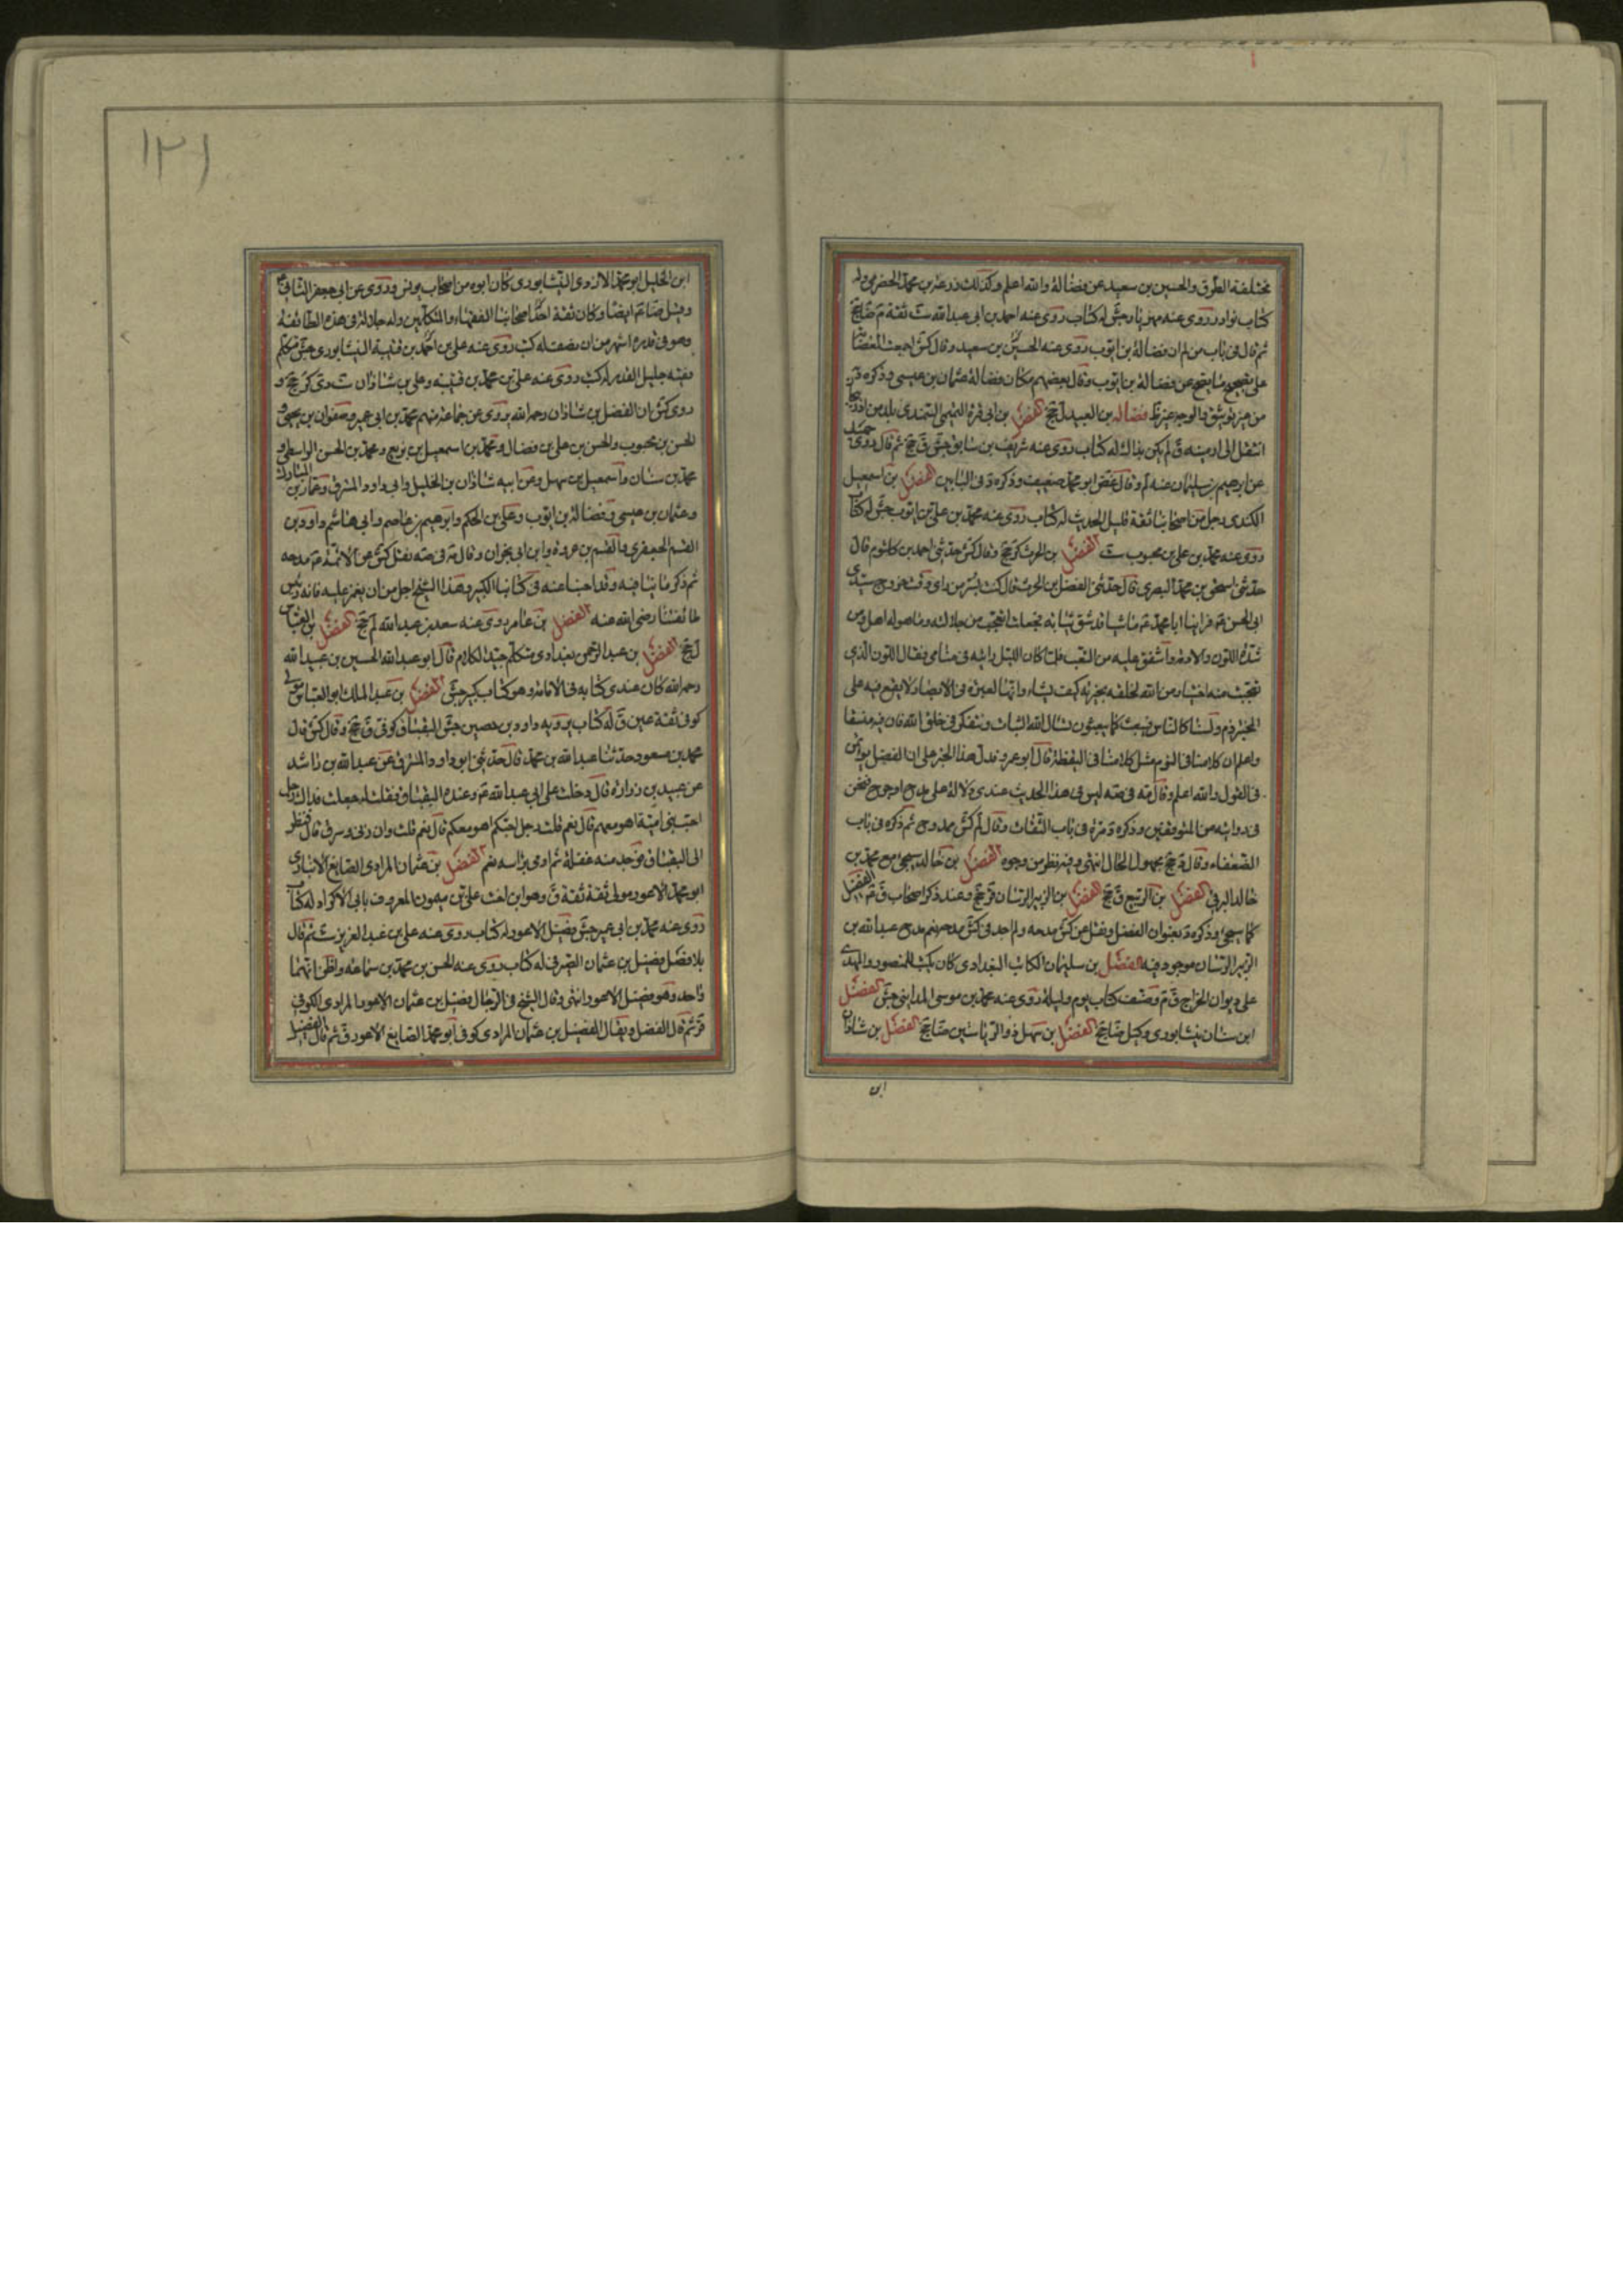 مختلفة الطرق والحسين بن سعيد عن فضالة والله اعلم وكذلك زرعة بن محمد الحضرمي وله
كتاب نوادر روى عنه مهزيار جش له كتاب روى عنه احمد بن ابي عبد الله ست ثقة م ضا جخ
ثم قال في باب من لم ان فضالة بن ايوب روى عنه الحسين بن سعيد وقال كش اجمعت العصابة
على تصحيح ما يصح عن فضالة بن ايوب وقال بعضهم مكان فضالة عثمان بن عيسى وذكره
من غير توثيق والوجه غير ظ فضالة بن العبيد ل جخ الفضل بن ابي قرة التميمي السهندي بلد من اذربيجان
انتقل الى ارمينه ق لم يكن بذاك له كتاب روى عنه شريف بن سابق جش ق جخ ثم قال روى حميد
عن ابرهيم بن سليمان عنه لم وقال غض ابو محمد ضعيف وذكره في البابين الفضل بن اسمعيل
الكندي رجل من اصحابنا ثقة قليل الحديث له كتاب روى عنه محمد بن علي بن ايوب جش له كتاب
روى عنه محمد بن علي بن محبوب ست الفضل بن الحرث كر جخ وقال كش حدثني احمد بن كلثوم قال
حدثني اسحق بن محمد البصري قال حدثني الفضل بن الحرث قال كنت بسر من راى وقت خروج سيدي
ابي الحسن ع فراينا ابا محمد ع ماشيا قد شق ثيابه فجعلت اتعجب من جلالته وما هو له اهل ومن
شدة اللون والادمة واشفق عليه من التعب فلما كان الليل رايته في منامي فقال اللون الذي
تعجبت منه اختيار من الله لخلقه يختبر به كيف يشاء وانها لعبرة في الابصار لا يقع فيه على
المختبر ذم ولسنا كالناس فنتعب كما يتعبون نسال الله الثبات ونتفكر في خلق الله فان فيه متسعا
واعلم ان كلامنا في النوم مثل كلامنا في اليقظة قال ابو عمرو فدل هذا الخبر على ان الفضل
في القول والله اعلم وقال مه في صه ليس في هذا الحديث عندي دلالة على مدح او جرح فنحن
في روايته من المتوقفين وذكره د مرة في باب الثقات وقال لم كش ممدوح ثم ذكره في باب
الضعفاء وقال جخ مجهول الحال انتهى وفيه نظر من وجوه الفضل بن خالد سيجئ مع محمد بن
خالد البرقي الفضل بن الربيع ق جخ الفضل بن الزبير الرسان قر جخ وعند ذكر اصحاب ق ع الفضيل
كما سيجئ وذكره د بعنوان الفضل ونقل عن كش مدحه ولم اجد في كش مدحه نعم مدح عبد الله بن
الزبير الرسان موجود فيه الفضل بن سليمان الكاتب البغدادي كان يكتب للمنصور والمهدي
على ديوان الخراج ق م وصنف كتاب يوم وليلة روى عنه محمد بن موسى المدايني جش الفضل
ابن سنان نيشابوري وكيل ضا جخ الفضل بن سهل ذو الرياستين ضا جخ الفضل بن شاذان
ابن
١٢١
ابن الخليل ابو محمد الازدي النيشابوري كان ابوه من اصحاب يونس وروى عن ابي جعفر الثاني ع
وقيل ضا ع ايضا وكان ثقة احد اصحابنا الفقهاء والمتكلمين وله جلالة في هذه الطائفة
وهو في قدره اشهر من ان نصفه له كتب روى عنه علي بن احمد بن قتيبة النيشابوري جش متكلم
فقيه جليل القدر له كتب روى عنه علي بن محمد بن قتيبه وعلي بن شاذان ست دي كر جخ و
روى كش ان الفضل بن شاذان رحمه الله يروي عن جماعة منهم محمد بن ابي عمير وصفوان بن يحيى و
الحسن بن محبوب والحسن بن علي بن فضال ومحمد بن اسمعيل بن بزيع ومحمد بن الحسن الواسطي و
محمد بن سنان واسمعيل بن سهل وعن ابيه شاذان بن الخليل وابي داود المسترق وعمار بن المبارك
وعثمان بن عيسى وفضالة بن ايوب وعلي بن الحكم وابرهيم بن عاصم وابي هاشم داود بن
القسم الجعفري والقسم بن عروة وابن ابي نجران وقال مه في صه نقل كش عن الائمة ع مدحه
ثم ذكر ما ينافيه وقد اجبنا عنه في كتابنا الكبير وهذا الشيخ اجل من ان يغمز عليه فانه رئيس
طائفتنا رضي الله عنه الفضل بن عامر روى عنه سعد بن عبد الله لم جخ الفضل بن العباس
ل جخ الفضل بن عبد الرحمن بغدادي متكلم جيد الكلام قال ابو عبد الله الحسين بن عبيد الله
رحمه الله كان عندي كتابه في الامامة وهو كتاب كبير جش الفضل بن عبد الملك ابو العباس مولى
كوفي ثقة عين ق له كتاب يرويه داود بن حصين جش البقباق كوفي ق جخ وقال كش قال
محمد بن مسعود حدثنا عبد الله بن محمد قال حدثني ابو داود المسترق عن عبد الله بن راشد
عن عبيد بن زراره قال دخلت على ابي عبد الله ع وعنده البقباق فقلت له جعلت فداك رجل
احب بني امية اهو معهم قال نعم قلت رجل احبكم اهو معكم قال نعم قلت وان زنى وسرق قال فنظر
الى البقباق فوجد منه غفلة ثم اومى براسه نعم الفضل بن عثمان المرادي الصايغ الانباري
ابو محمد الاعور مولى ثقة ثقة ق وهو ابن اخت علي بن ميمون المعروف بابي الاكراد له كتاب
روى عنه محمد بن ابي عمير جش فضيل الاعور له كتاب روى عنه علي بن عبد العزيز ست ثم قال
بلا فصل فضيل بن عثمان الصيرفي له كتاب روى عنه الحسن بن محمد بن سماعه واظن انهما
واحد وهو فضيل الاعور انتهى وقال الشيخ في الرجال فضيل بن عثمان الاعور المرادي الكوفي
قر ثم قال الفضل ويقال الفضيل بن عثمان المرادي كوفي ابو محمد الصايغ الاعور ق ثم قال الفضيل